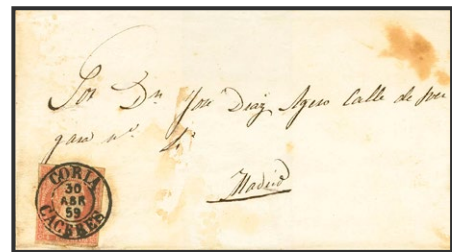 Sor Dn Jose Diaz Agero Calle de
gara nº
Madrid
CORIA
30
ABR
59
CACERES